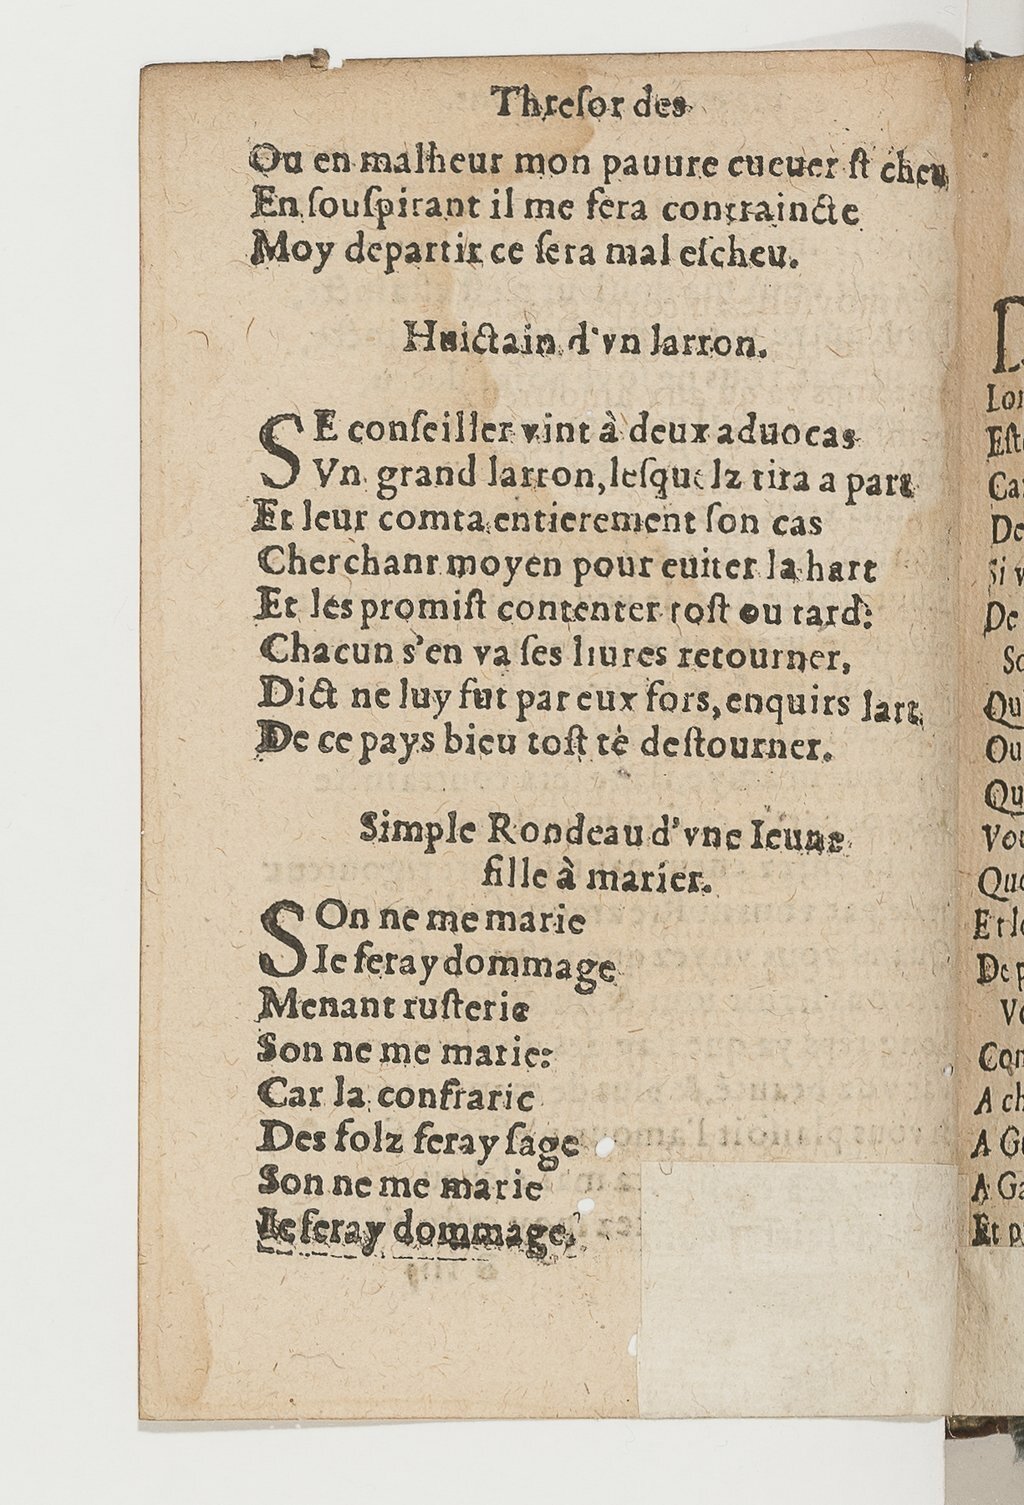 Threſor des
Ou en malheur mon pauure cueuer ſt cheu
En ſouſpirant il me ſera contraincte
Moy departir ce ſera mal eſcheu.
Huictain d'vn larron.
SE conſeiller vint à deux aduocas
Vn grand larron, leſquelz tira a part
Et leur comta entierement ſon cas
Cherchant moyen pour euiter la hart
Et les promiſt contenter toſt ou tard:
Chacun s'en va ſes liures retourner,
Dict ne luy fut par eux fors, enquirs lart,
De ce pays bieu toſt tè deſtourner.
Simple Rondeau d'vne Ieune
fille à marier.
SOn ne me marie
Ie feray dommage
Menant ruſterie
Son ne me marie:
Car la confrarie
Des folz feray ſage
Son ne me marie
Ie feray dommage.
Lor
Eſt
Car
De
Si v
De
So
Qu
Ou
Qu
Vou
Que
Et le
De p
Vo
Com
A ch
A Ge
A Ga
Et p